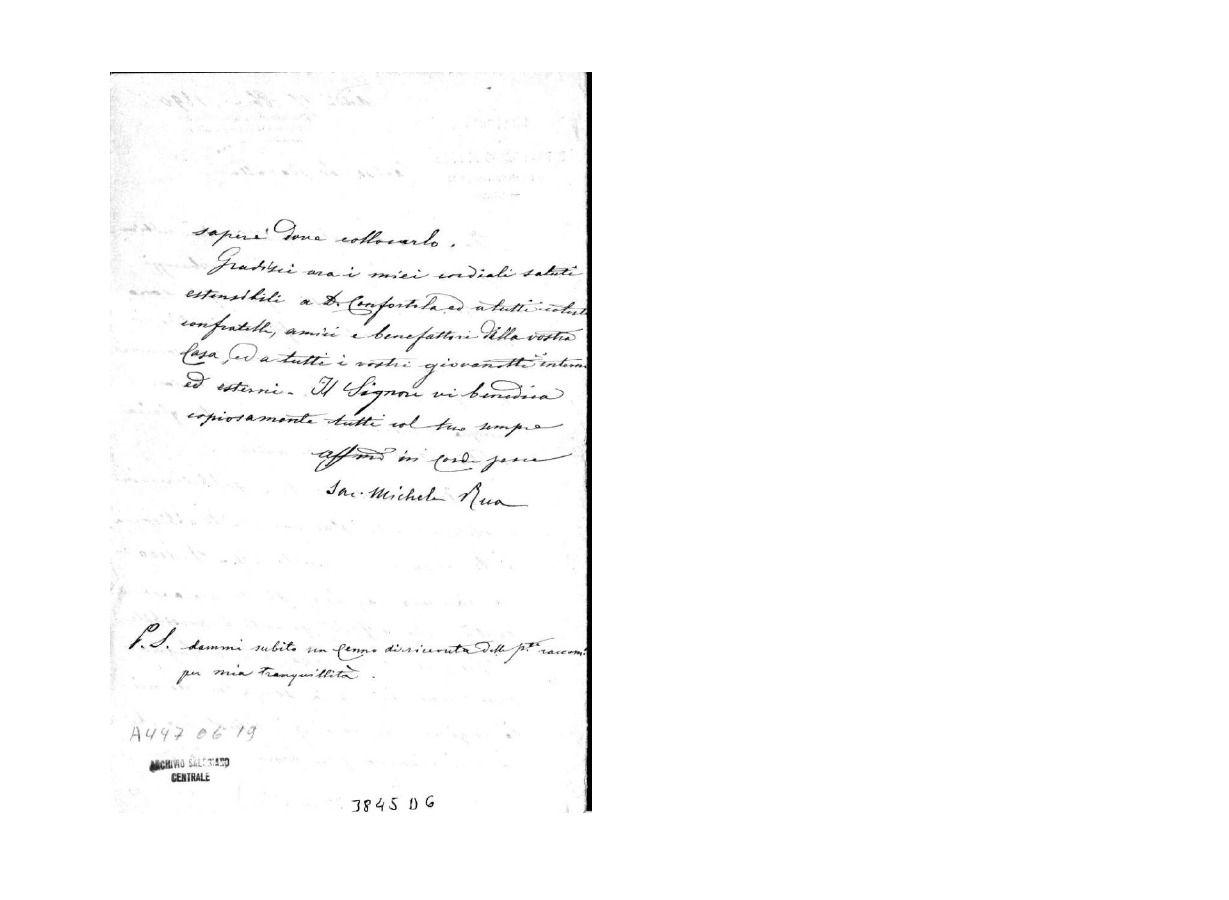 sapere dove collocarlo.
Gradisci ora i miei cordiali saluti
estensibili a D. Confortola ed a tutti cotesti
confratelli, amici e benefattori della vostra
Casa, ed a tutti i vostri giovanotti interni
ed esterni. Il Signore vi benedica
copiosamente tutti col tuo sempre
affmo in Corde Jesu
Sac. Michele Rua
P.S. dammi subito un cenno di ricevuta della pte raccom.
per mia tranquillità.
A447 06 19
ARCHIVIO SALESIANO
CENTRALE
3845 D6